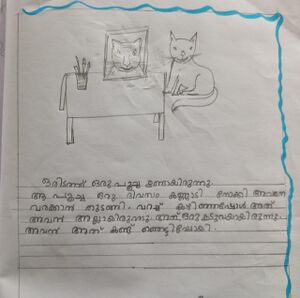 ഒരിടത്ത് ഒരു പൂച്ച ഉണ്ടായിരുന്നു.
ആ പൂച്ച ഒരു ദിവസം കണ്ണാടി നോക്കി അവനെ
വരക്കാൻ തുടങ്ങി. വരച്ച് കഴിഞ്ഞപ്പോൾ അത്
അവൻ അല്ലായിരുന്നു. അത് ഒരു കടുവയായിരുന്നു.
അവൻ അത് കണ്ട് ഞെട്ടിപ്പോയി.